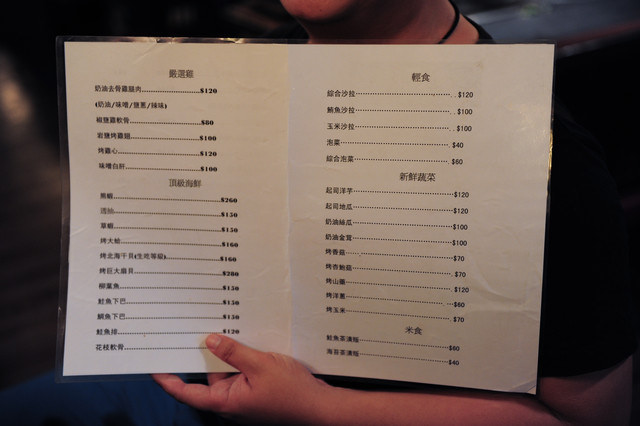 嚴選雞
奶油去骨雞腿肉 $120
(奶油/味噌/鹽蔥/辣味)
椒鹽雞軟骨 $80
岩鹽烤雞腿 $100
烤雞心 $120
味噌白肝 $100
頂級海鮮
熊蝦 $260
$150
草蝦 $150
烤大蛤 $160
烤北海干貝(生吃等級) $160
烤巨大扇貝 $280
柳葉魚 $150
鮭魚下巴 $150
鯛魚下巴 $150
鮭魚排 $120
花枝軟骨
輕食
綜合沙拉 $120
鮪魚沙拉 $100
玉米沙拉 $100
泡菜 $40
綜合泡菜 $60
新鮮蔬菜
起司洋芋 $120
起司地瓜 $120
奶油絲瓜 $100
奶油金茸 $100
烤香菇 $70
烤杏鮑菇 $70
烤山藥 $120
烤洋蔥 $60
烤玉米 $70
米食
鮭魚茶漬飯 $60
海苔茶漬飯 $40